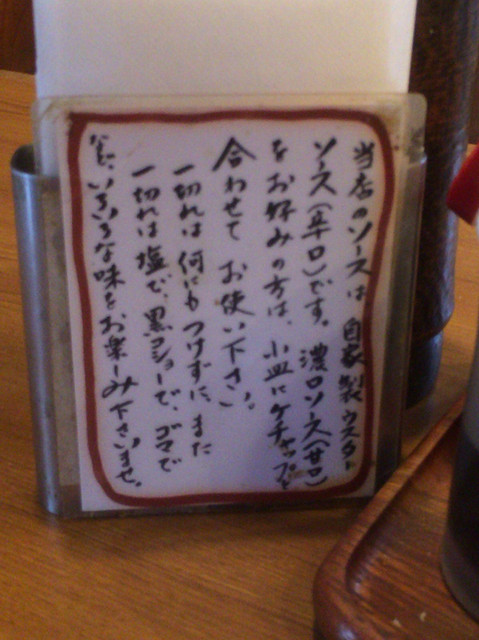 当店のソースは自家製ウスター
ソース(辛口)です。濃口ソース(甘口)
をお好みの方は、小皿にケチャップを
合わせてお使い下さい。
一切れは何にもつけずに、また
一切れは塩で、黒コショーで、ゴマで
など、いろいろな味をお楽しみ下さいませ。